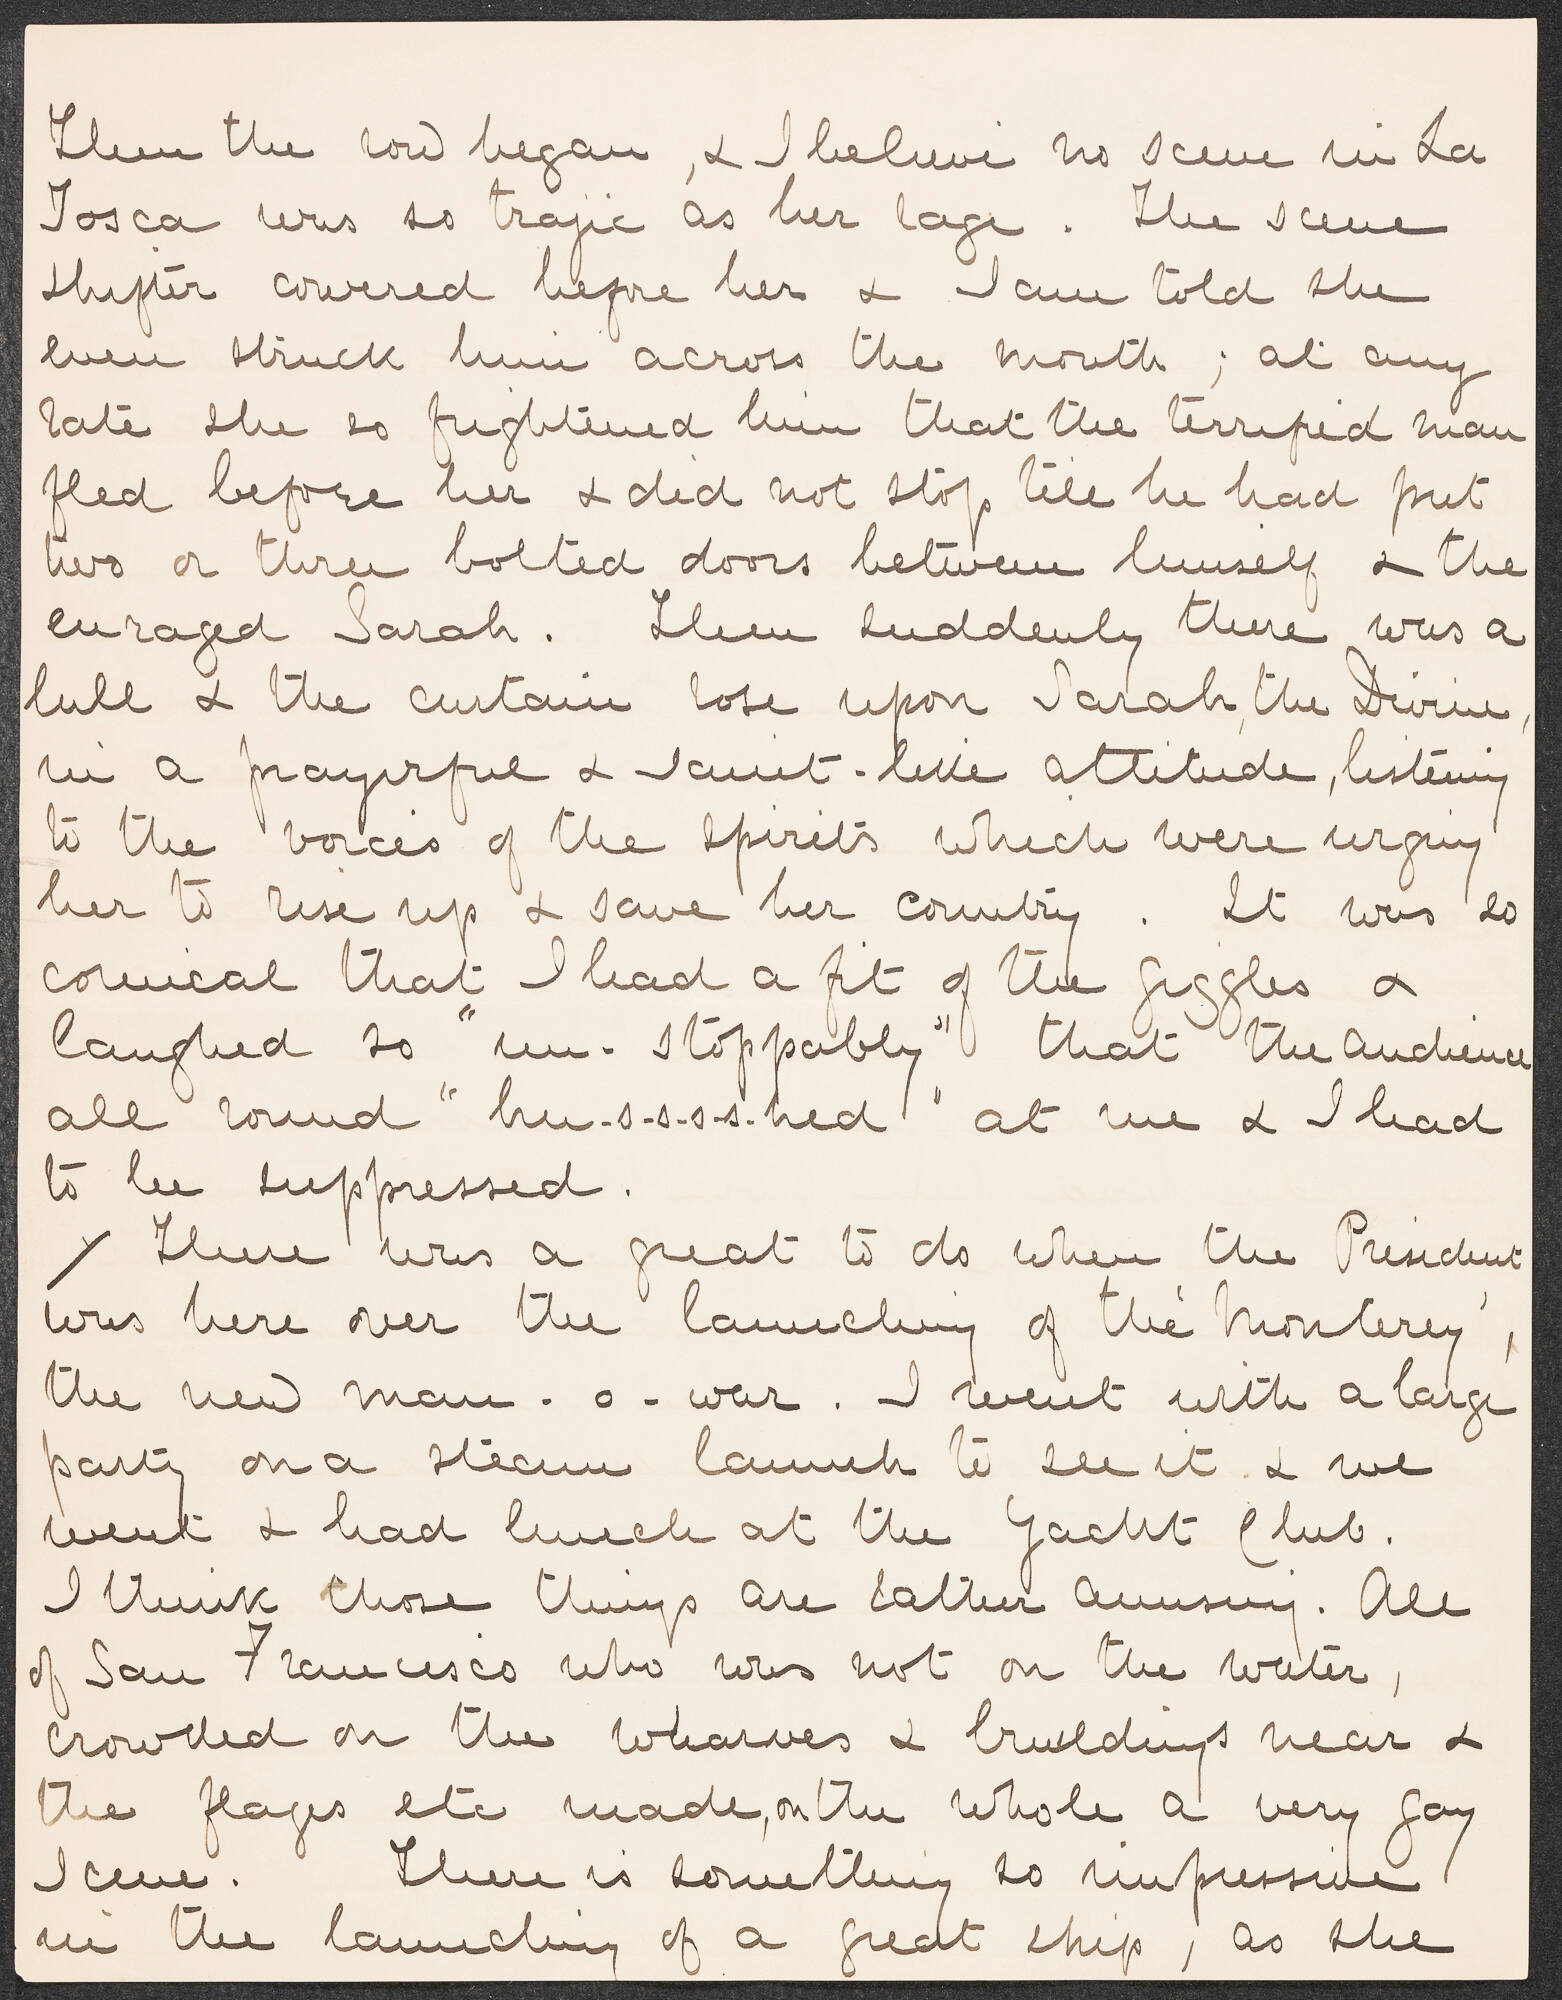 Then the row began, & I believe no scene in La
Tosca was so trajic as her rage. The scene
shifter cowered before her & I am told she
even struck him across the mouth; at any
rate she so frightened him that the terrified man
fled before her & did not stop till he had put
two or three bolted doors between himself & the
enraged Sarah. Then suddenly there was a
lull & the curtain rose upon Sarah, the Divine,
in a prayerful & saint-like attitude, listening
to the voices of the spirits which were urging
her to rise up & save her country. It was so
comical that I had a fit of the giggles &
laughed so "un-stoppably" that the audience
all round "hu-s-s-s-s-hed" at me & I had
to be suppressed.
/ There was a great to do when the President
was here over the launching of the 'Monterey',
the new man-o-war. I went with a large
party on a steam launch to see it & we
went & had lunch at the Yacht Club.
I think those things are rather amusing. All
of San Francisco who was not on the water,
crowded on the wharves & buildings near &
the flags etc made, on the whole a very gay
scene. There is something so impressive
in the launching of a great ship, as she